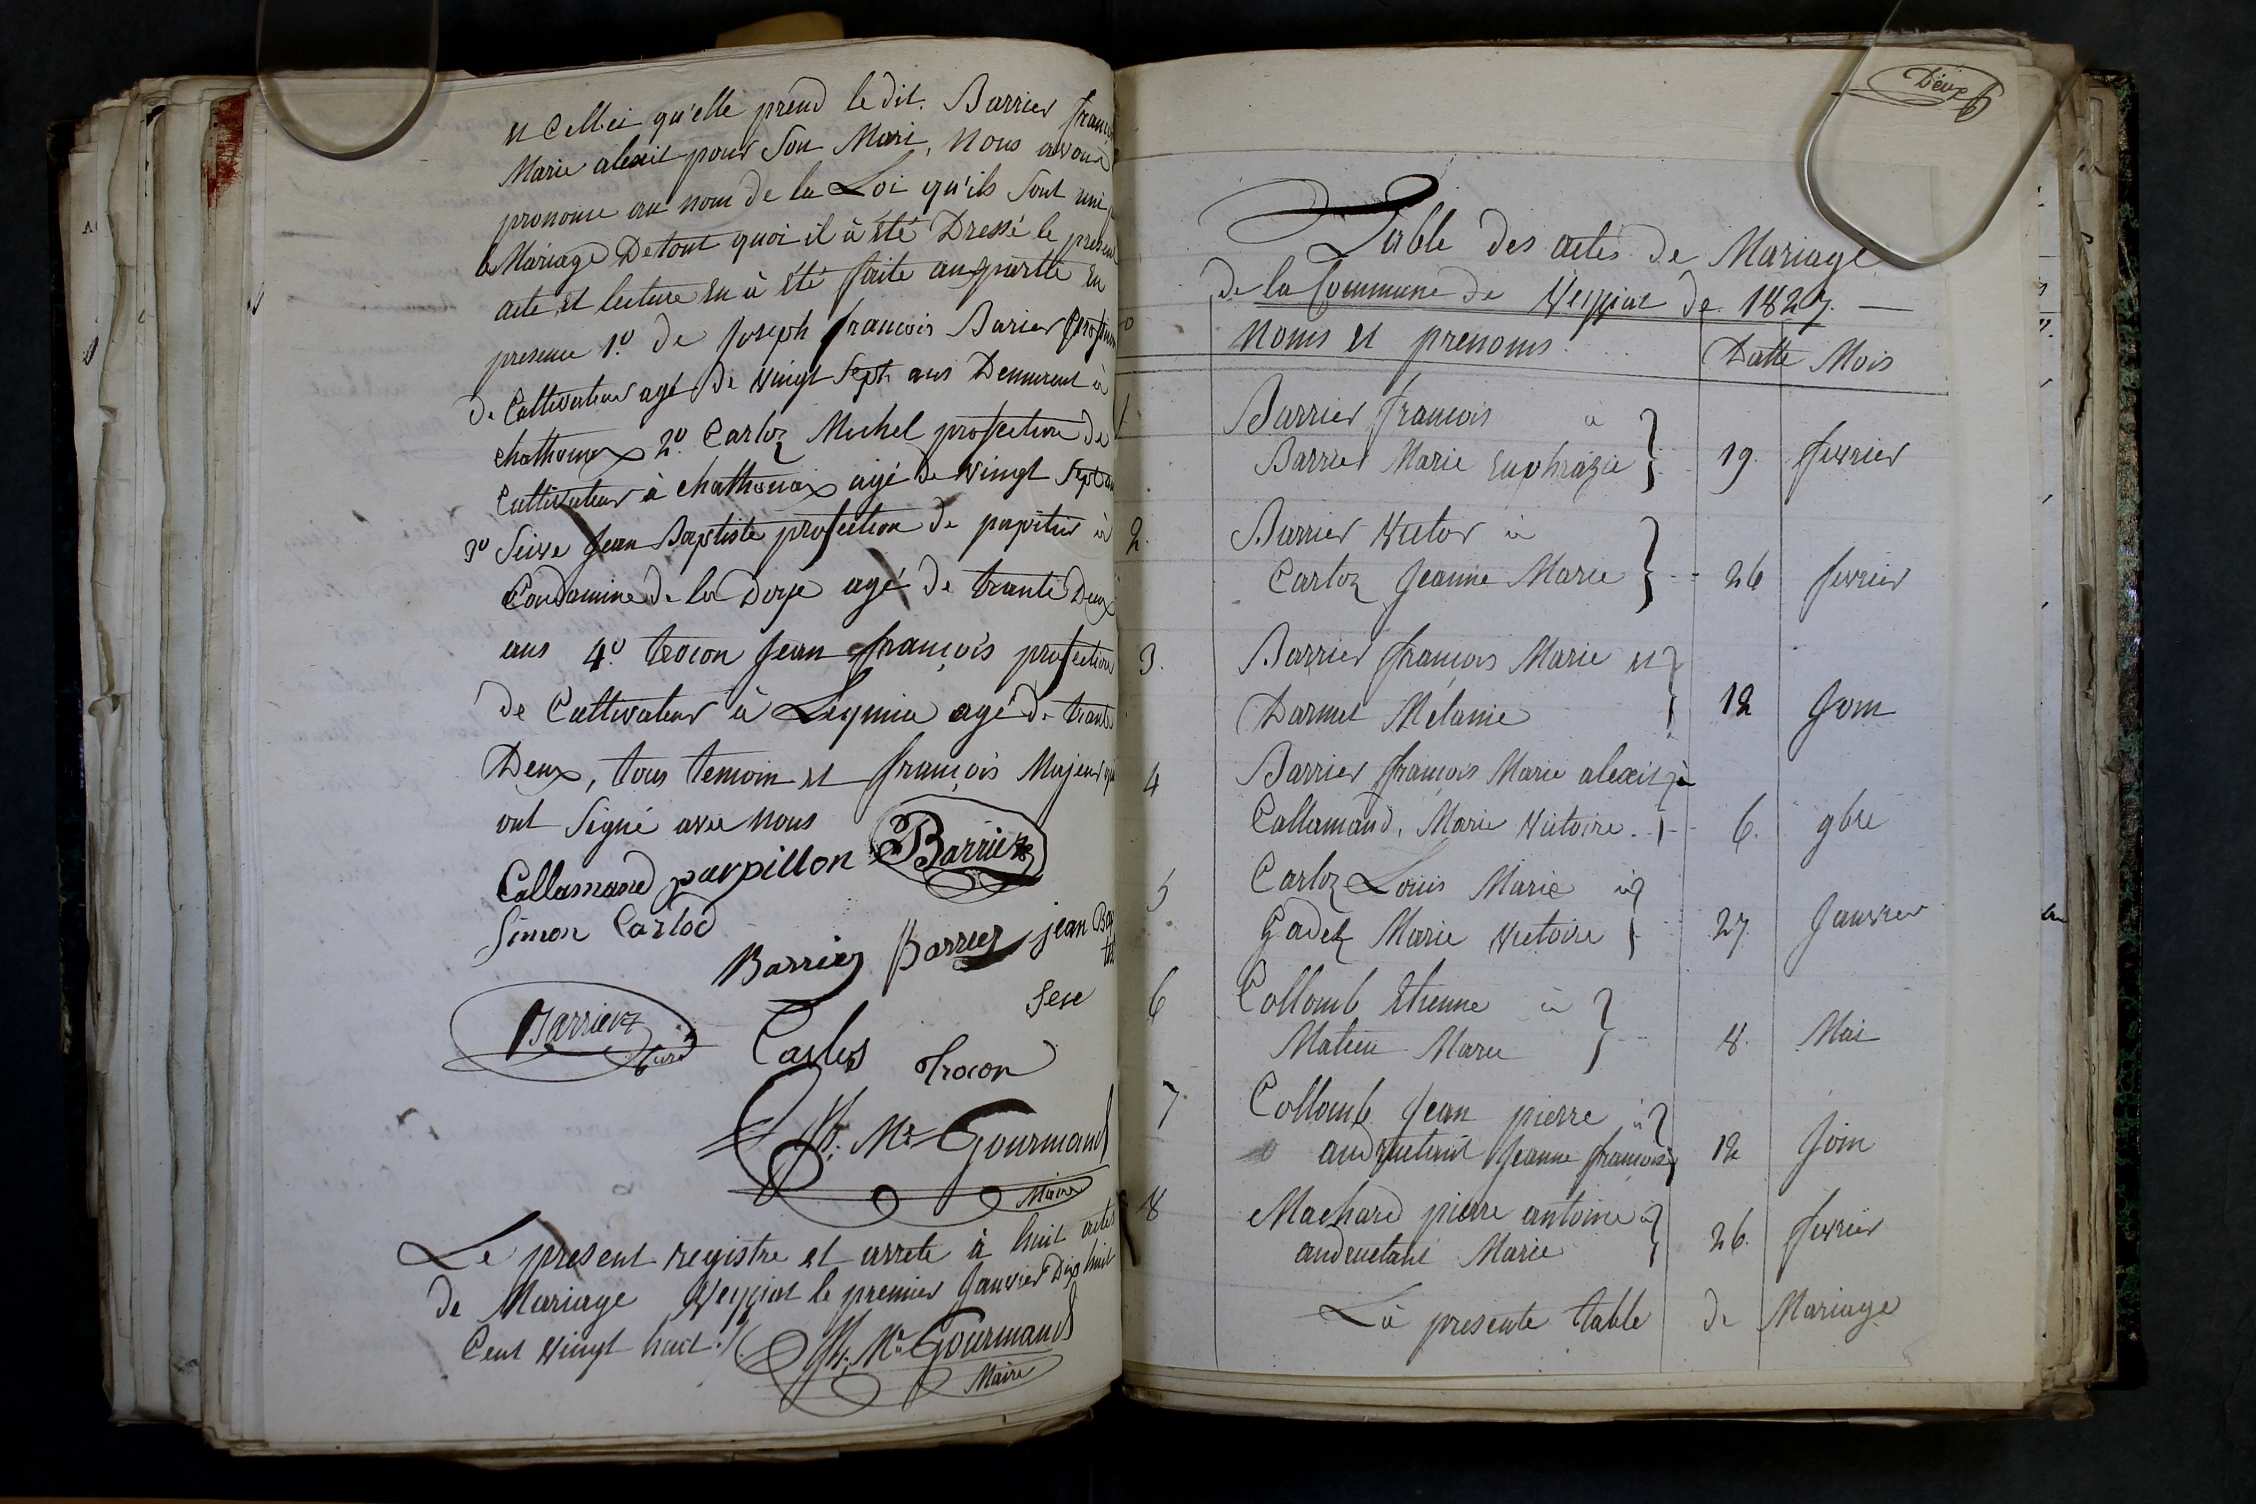 et Celleci qu'elle prend le dit. Barrier françois
Marie alexit pour Son Mari, Nous avons
prononce au nom de la Loi qu'ils Sont uni
le Mariage De tout quoi il à été Dressé le present
acte et lecture en à été faite au partie En
presence 1.º de Joseph francois Barier Profession
de Cultivateur agé de vingt Sept ans Demeurent à
chathonax 2.º Carloz Michel profection de
Cultivateur à chathonax agé de vingt Sept ans
3º Seive Jean Baptiste profection de papitier à
Condamine de la Doye agé de trante Deux
ans 4.º trocon Jean françois profection
de Cultivateur à Leymia agé de trante
Deux, tous temoin et françois Majeur qui
ont Signé avec nous
Collamand parpillon Barrier
Simon Carlod
Barrier Barrier jean Bap
Barrier Curé
Carlos trocon
M.r Gourmand
Maire
Le present registre et arrete à huit actes
de Mariage Veyziat le premier Janvier Dix huit
Cent vingt huit ./.
M.r Gourmand
Maire
Deux
Table des actes de Mariage
de la Commune de Veyziat de 1827. —
Noms et prenoms Datte Mois
1 Barrier francois à
Barrier Marie Euphrazie 19. fevrier
2. Barrier Victor à
Carloz Jeanne Marie 26 fevrier
3. Barrier françois Marie et
Darmet Melanie 12 Join
4 Barrier françois Marie alexit à
Callamand, Marie Victoire. 6. 9bre
5 Carloz Louis Marie à
Gadez Marie Victoire 27 Janvier
6 Collomb Etienne à
Matieu Marie 8. Mai
7. Collomb Jean pierre à
andruetant Jeanne françoise 12 Join
8 Machard pierre antoine à
andruetant Marie 26. fevrier
Là presente table de Mariage